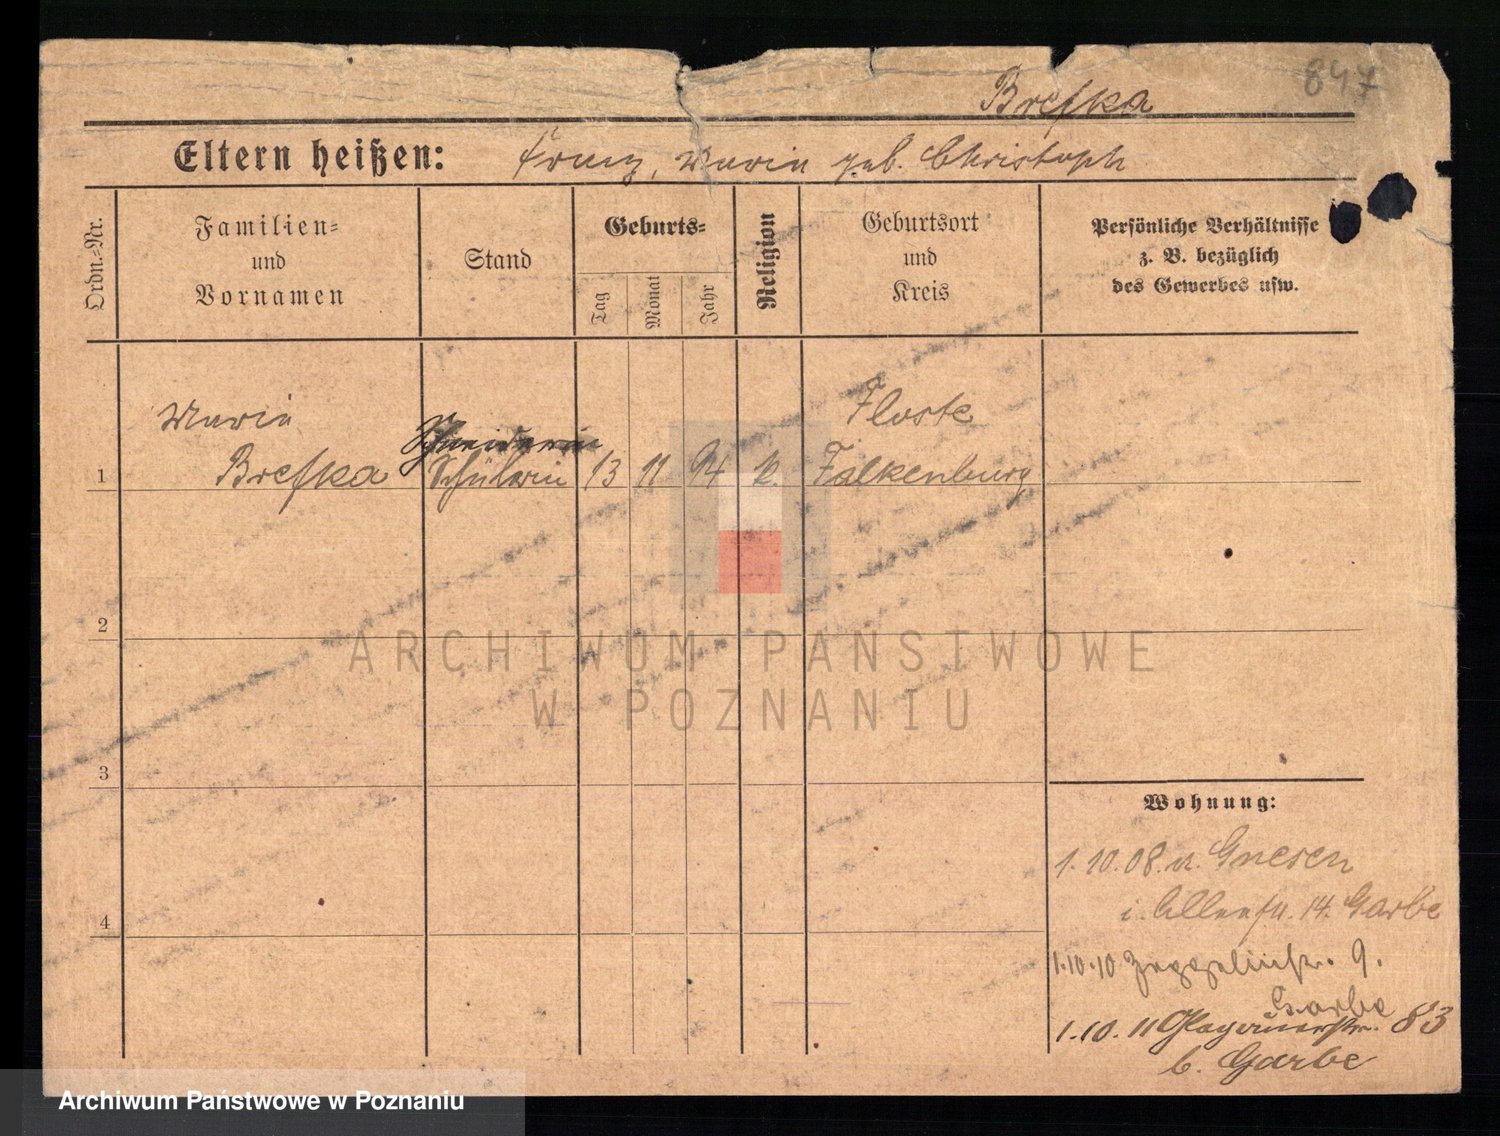 847
Brefka
Eltern heißen: Franz, Maria geb. Christoph
Ordn.-Nr.
Familien=
und
Vornamen
Stand
Geburts=
Tag
Monat
Jahr
Religion
Geburtsort
und
Kreis
Persönliche Verhältnisse
z. B. bezüglich
des Gewerbes usw.
Maria
Floste
Schneiderin
1 Brefka Schülerin 13 11 94 k. Falkenburg
2
ARCHIWUM PAŃSTWOWE
W POZNANIU
3
Wohnung:
1.10.08. v. Gnesen
14. Garbe
4
1.10.10 9.
Garbe
1.10.11 Glogauerstr. 83
b. Garbe
Archiwum Państwowe w Poznaniu